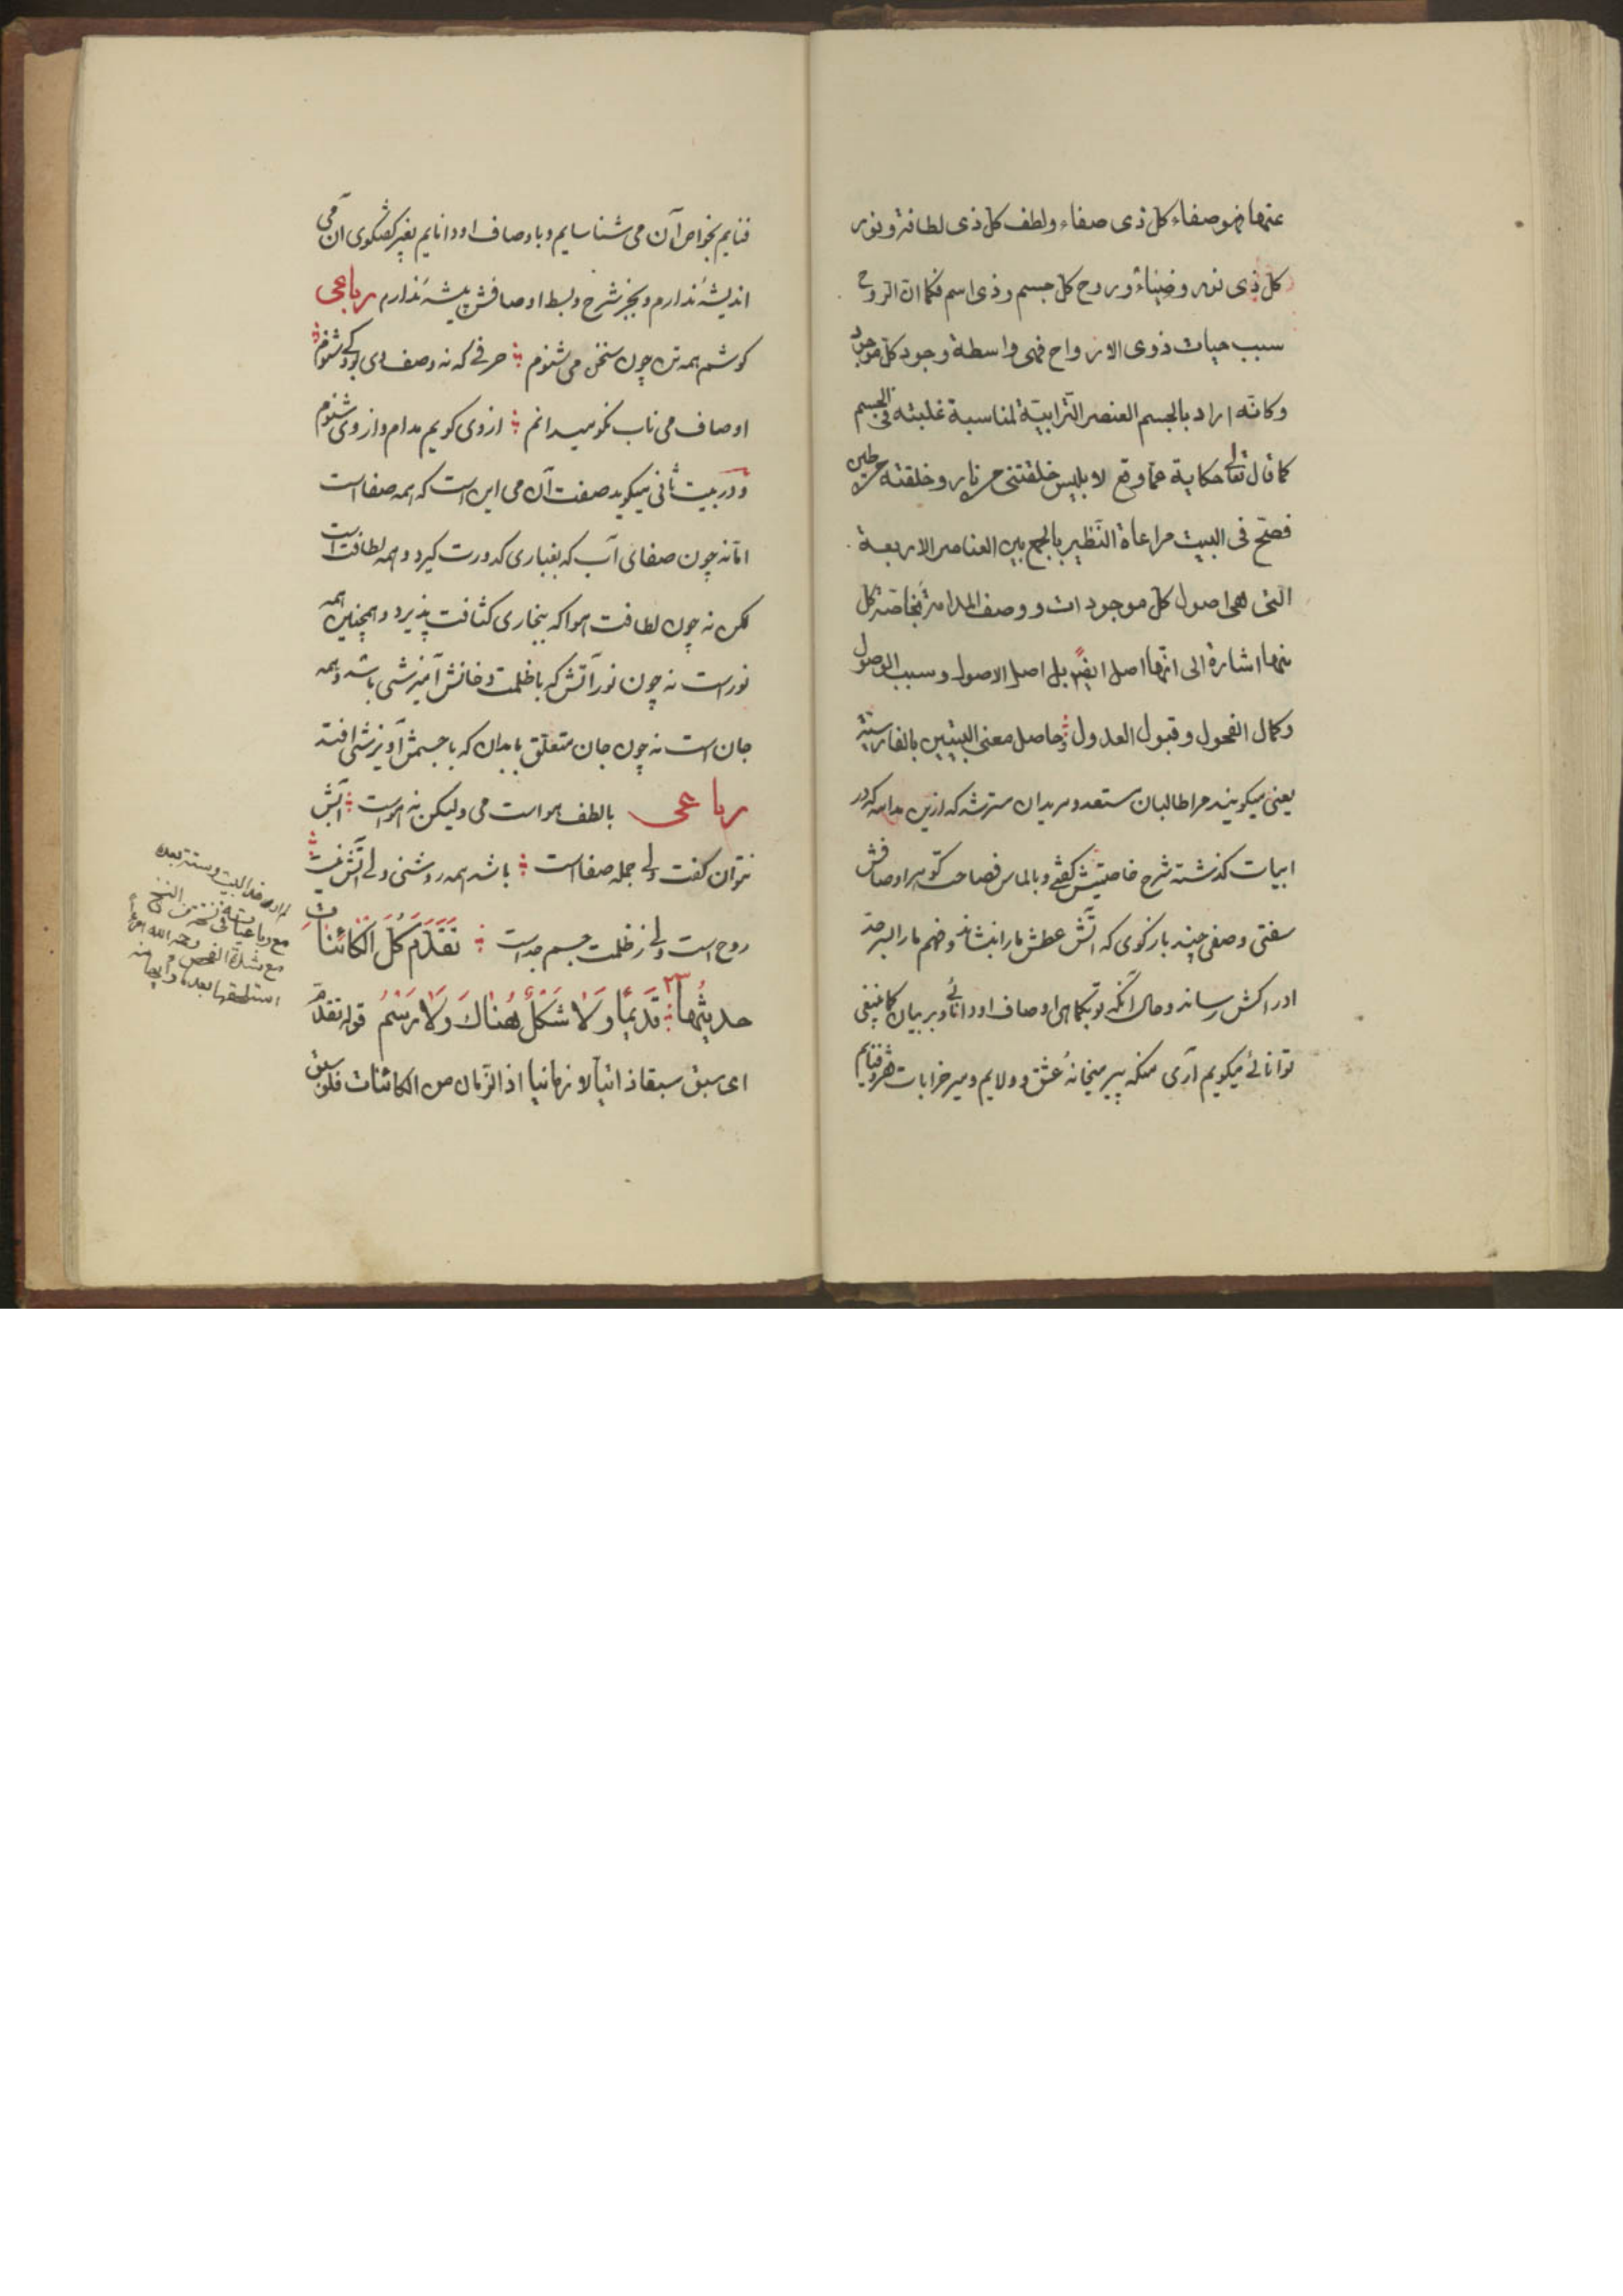 عنها فهو صفاء كل ذى صفاء ولطف كل ذى لطافة ونور
كل ذى نور وضياء وروح كل جسم وذى اسم فكما ان الروح
سبب حيات ذوى الارواح فهى واسطة وجود كل موجود
وكانه اراد بالجسم العنصر الترابيّة لمناسبة غلبته فى الجسم
كما قال تعالى حكاية عمّا وقع لابليس خلقتنى من نار وخلقته من طين
فصحّ فى البيت مراعاة النّظير بالجمع بين العناصر الاربعة
التى هى اصول كل موجود ات ووصف المدامة بخاصّة كل
منها اشارة الى انّها اصل ايضا بل اصل الاصول وسبب الوصول
وكمال الفحول وقبول العدول وحاصل معنى البيتين بالفارسيّة
يعنى ميكويند مرا طالبان مستعد ومريدان مسترشد كه ازين مدامه كه در
ابيات كذشته شرح خاصيتش كفتى وبالماس فصاحت كوهر اوصافش
سفتى وصفى چند باز كوى كه آتش عطش ما را بنشاند وفهم ما را بسرحدّ
ادراكش رساند وحال آنكه تو بكماهى اوصاف او دانائى وبر بيان كما ينبغى
توانائى ميكويم آرى منكه پير ميخانهٔ عشق وولايم ومير خرابات فقر وفنايم
فنايم بخواص آن مى شناسايم وباوصاف او دانايم بغير كفتكوى آن مى
انديشهٔ ندارم وبجز شرح وبسط اوصافش پيشهٔ ندارم رباعى
كوشم همه تن چون سخن مى شنوم حرفى كه نه وصف وى بود كى شنوم
اوصاف مى ناب نكو ميدانم از وى كويم مدام واز وى شنوم
ودر بيت ثانى ميكويد صفت آن مى اين است كه همه صفا است
امّا نه چون صفاى آب كه بغبارى كدورت كيرد وهمه لطافت است
لكن نه چون لطافت هوا كه ببخارى كثافت پذيرد وهمچنين همه
نور است نه چون نور آتش كه با ظلمت دخانش آميزشى باشد وهمه
جان است نه چون جان متعلق بابدان كه با جسمش آويزشى افتد
رباعى بالطف هوا است مى وليكن نه هواست آبش
نتوان كفت ولى جمله صفا است باشد همه روشنى ولى آتش نيست
روح است ولى ز ظلمت جسم جداست تَقَدَّمَ كُلَّ الكائِناتِ
حديثُها قَديمًا وَلا شَكْلٌ هُناكَ وَلا رَسْمُ قوله تقدّم
اى سبق سبقا ذاتيا لا زمانيا اذ الزّمان من الكائنات فلو سبق